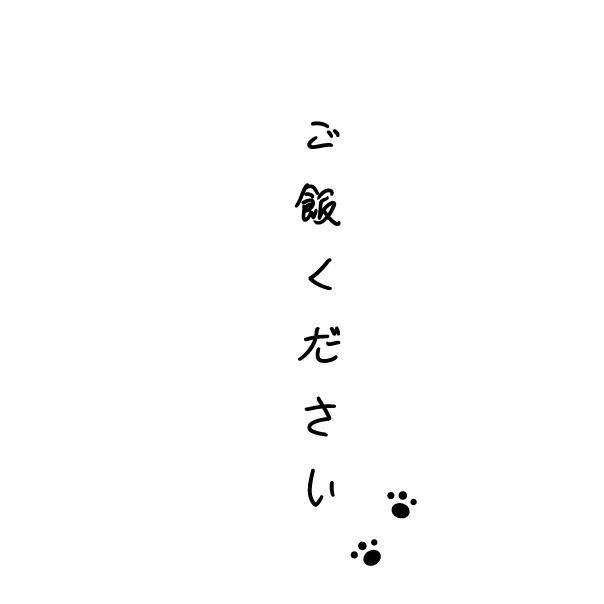 ご飯ください